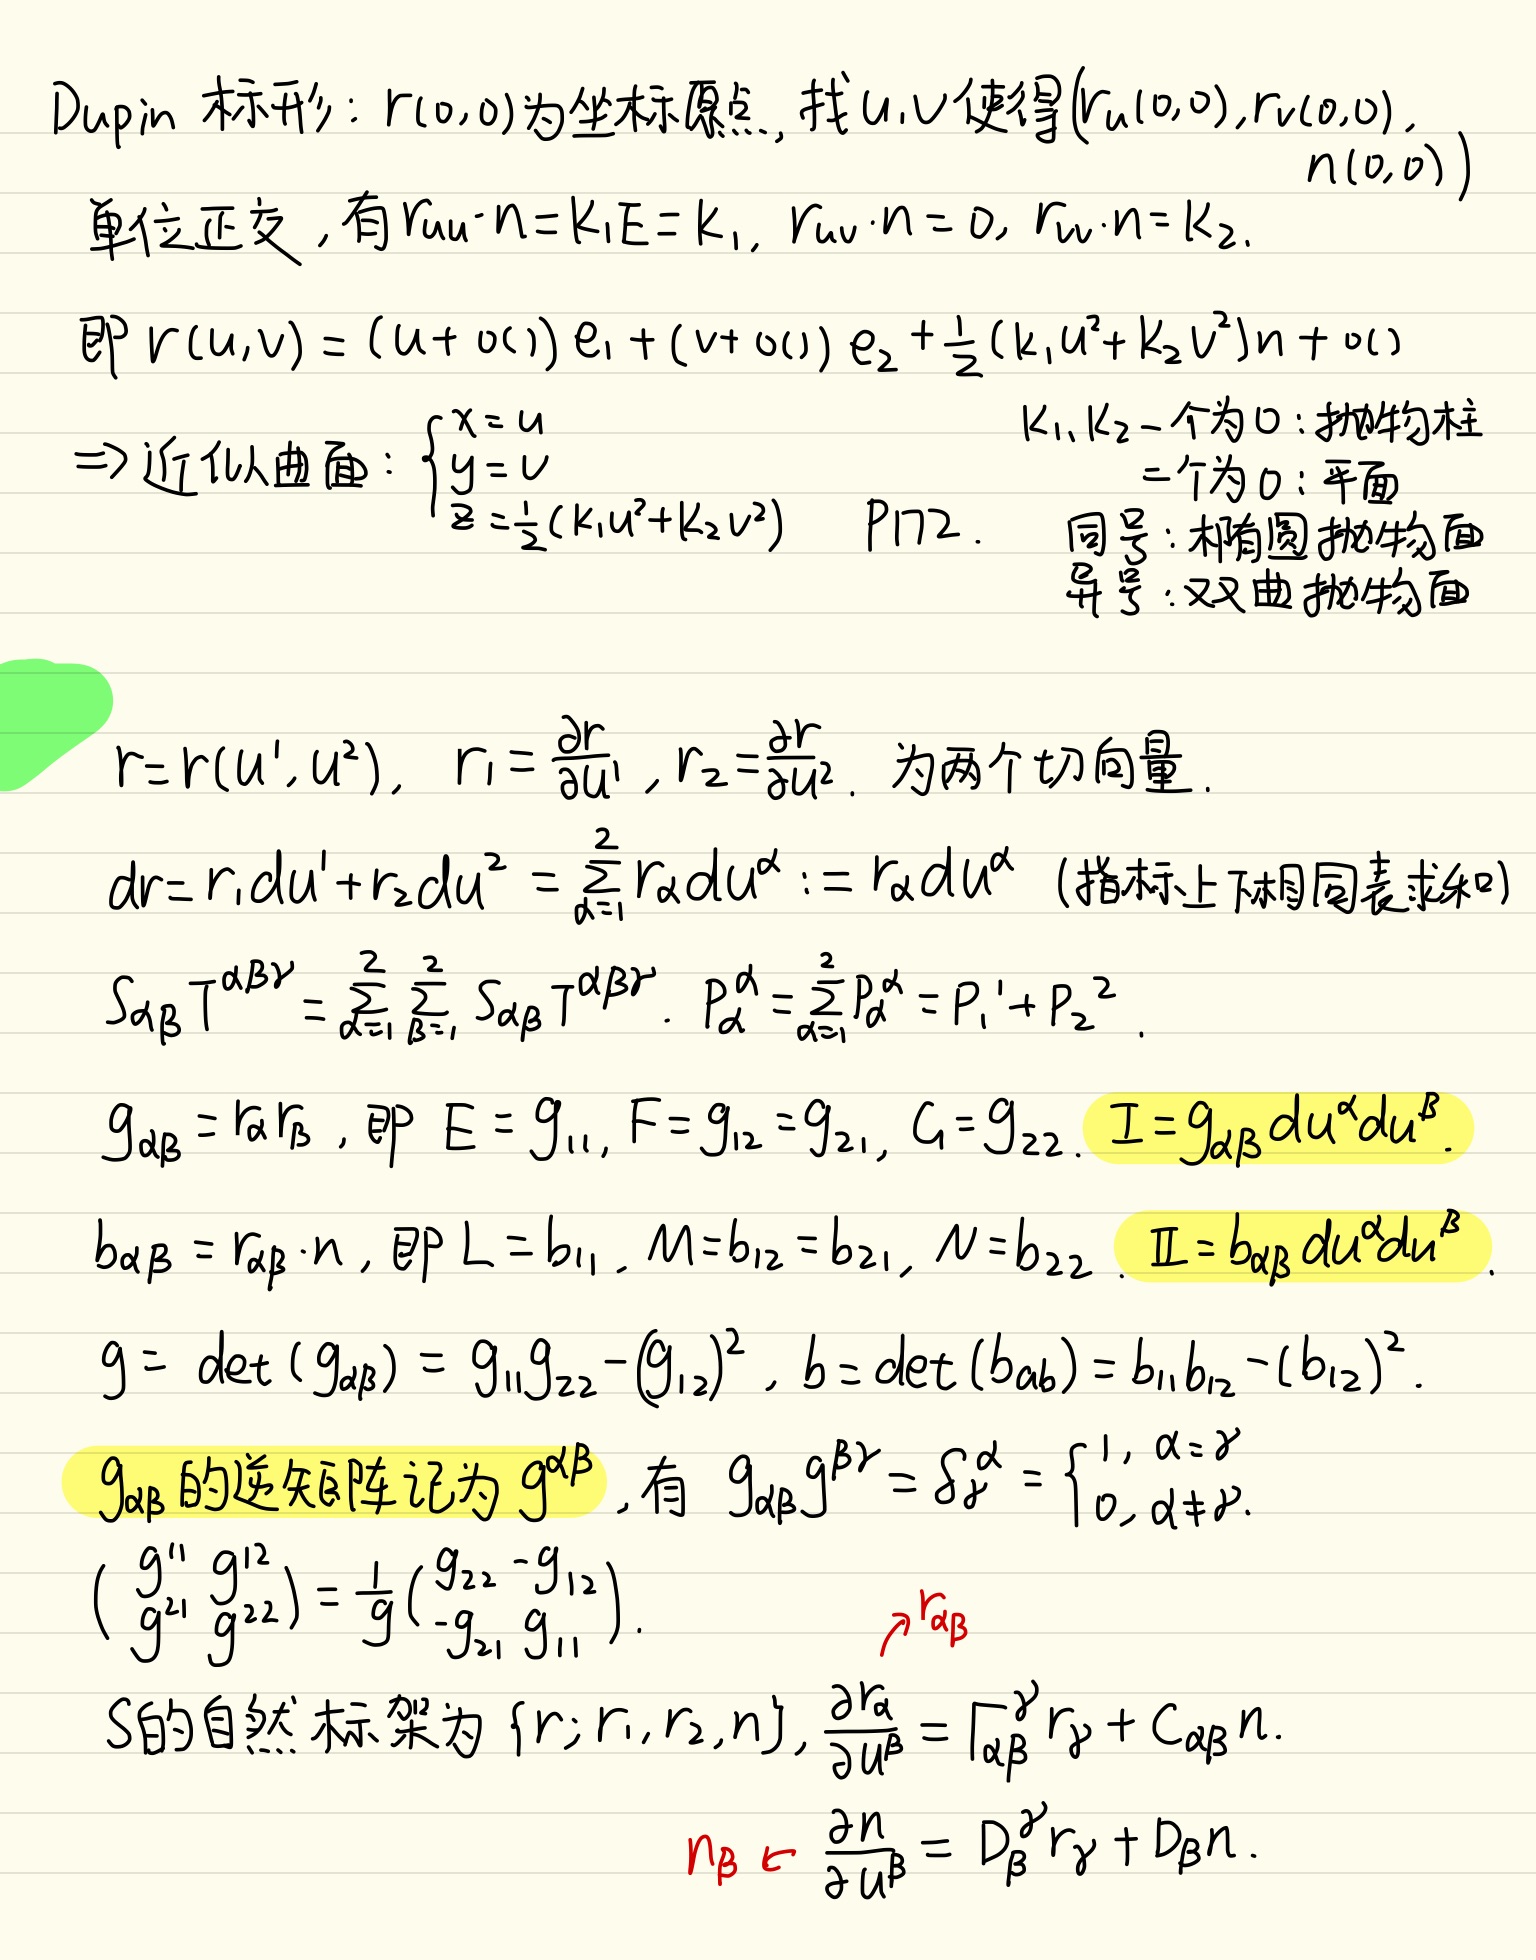 Dupin 标形: r(0,0)为坐标原点, 找u,v使得(r_u(0,0), r_v(0,0),
n(0,0))
单位正交, 有 r_uu·n=k₁E=k₁, r_uv·n=0, r_vv·n=k₂.
即 r(u,v) = (u+o()) e₁+(v+o()) e₂+½(k₁u²+k₂v²)n+o()
⇒近似曲面: { x=u
y=v
z=½(k₁u²+k₂v²) P172.
k₁、k₂一个为0: 抛物柱
二个为0: 平面
同号: 椭圆抛物面
异号: 双曲抛物面
r=r(u¹,u²), r₁=∂r/∂u¹, r₂=∂r/∂u². 为两个切向量.
dr=r₁du¹+r₂du² = Σ_{α=1}^{2} r_α du^α := r_α du^α (指标上下相同表求和)
S_{αβ}T^{αβγ} = Σ_{α=1}^{2} Σ_{β=1}^{2} S_{αβ}T^{αβγ}. P_α^α = Σ_{α=1}^{2} P_α^α = P₁¹+P₂².
g_{αβ} = r_α r_β, 即 E=g₁₁, F=g₁₂=g₂₁, G=g₂₂. I=g_{αβ}du^αdu^β.
b_{αβ} = r_{αβ}·n, 即 L=b₁₁, M=b₁₂=b₂₁, N=b₂₂. II=b_{αβ}du^αdu^β.
g = det(g_{αβ}) = g₁₁g₂₂-(g₁₂)², b=det(b_{ab})=b₁₁b₁₂-(b₁₂)².
g_{αβ}的逆矩阵记为g^{αβ}, 有 g_{αβ}g^{βγ} = δ_γ^α = { 1, α=γ
0, α≠γ.
( g¹¹ g¹²
g²¹ g²² ) = 1/g ( g₂₂ -g₁₂
-g₂₁ g₁₁ ).
↗r_{αβ}
S的自然标架为{r; r₁, r₂, n}, ∂r_α/∂u^β = Γ_{αβ}^γ r_γ + C_{αβ}n.
n_β ← ∂n/∂u^β = D_β^γ r_γ + D_β n.